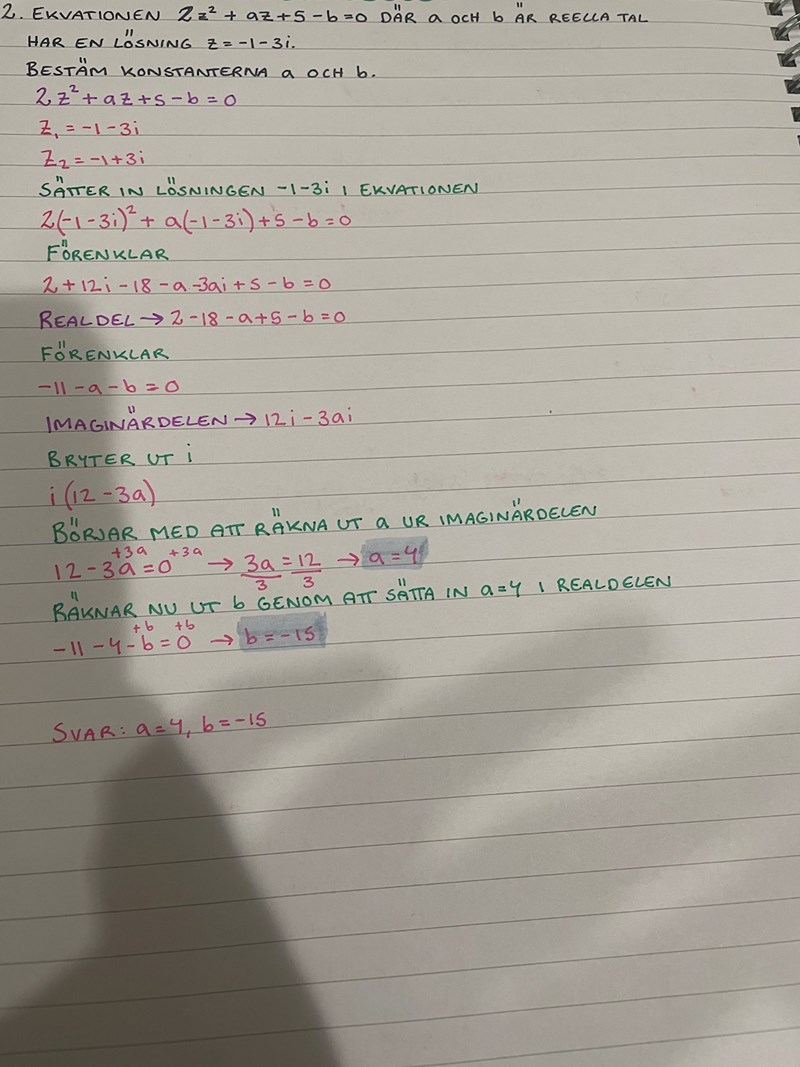 2. EKVATIONEN 2z² + az + 5 - b = 0 DÄR a OCH b ÄR REELLA TAL
HAR EN LÖSNING z = -1-3i.
BESTÄM KONSTANTERNA a OCH b.
2z² + az + 5 - b = 0
z₁ = -1-3i
z₂ = -1+3i
SÄTTER IN LÖSNINGEN -1-3i I EKVATIONEN
2(-1-3i)² + a(-1-3i) + 5 - b = 0
FÖRENKLAR
2 + 12i - 18 - a - 3ai + 5 - b = 0
REALDEL → 2 - 18 - a + 5 - b = 0
FÖRENKLAR
-11 - a - b = 0
IMAGINÄRDELEN → 12i - 3ai
BRYTER UT i
i(12 - 3a)
BÖRJAR MED ATT RÄKNA UT a UR IMAGINÄRDELEN
+3a +3a
12 - 3a = 0 → 3a/3 = 12/3 → a = 4
RÄKNAR NU UT b GENOM ATT SÄTTA IN a = 4 I REALDELEN
+b +b
-11 - 4 - b = 0 → b = -15
SVAR: a = 4, b = -15